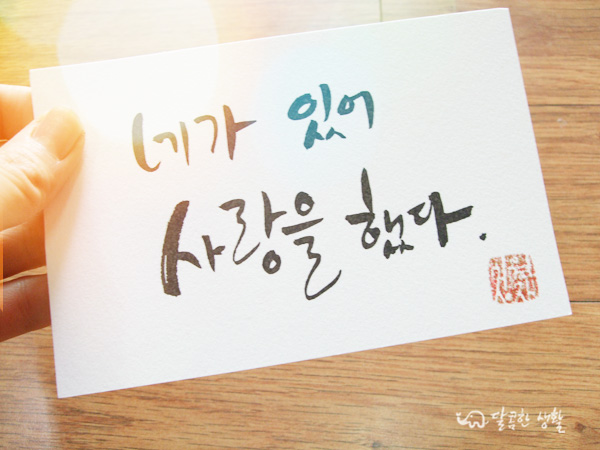 네가 있어
사랑을 했다.
달콤한 생활